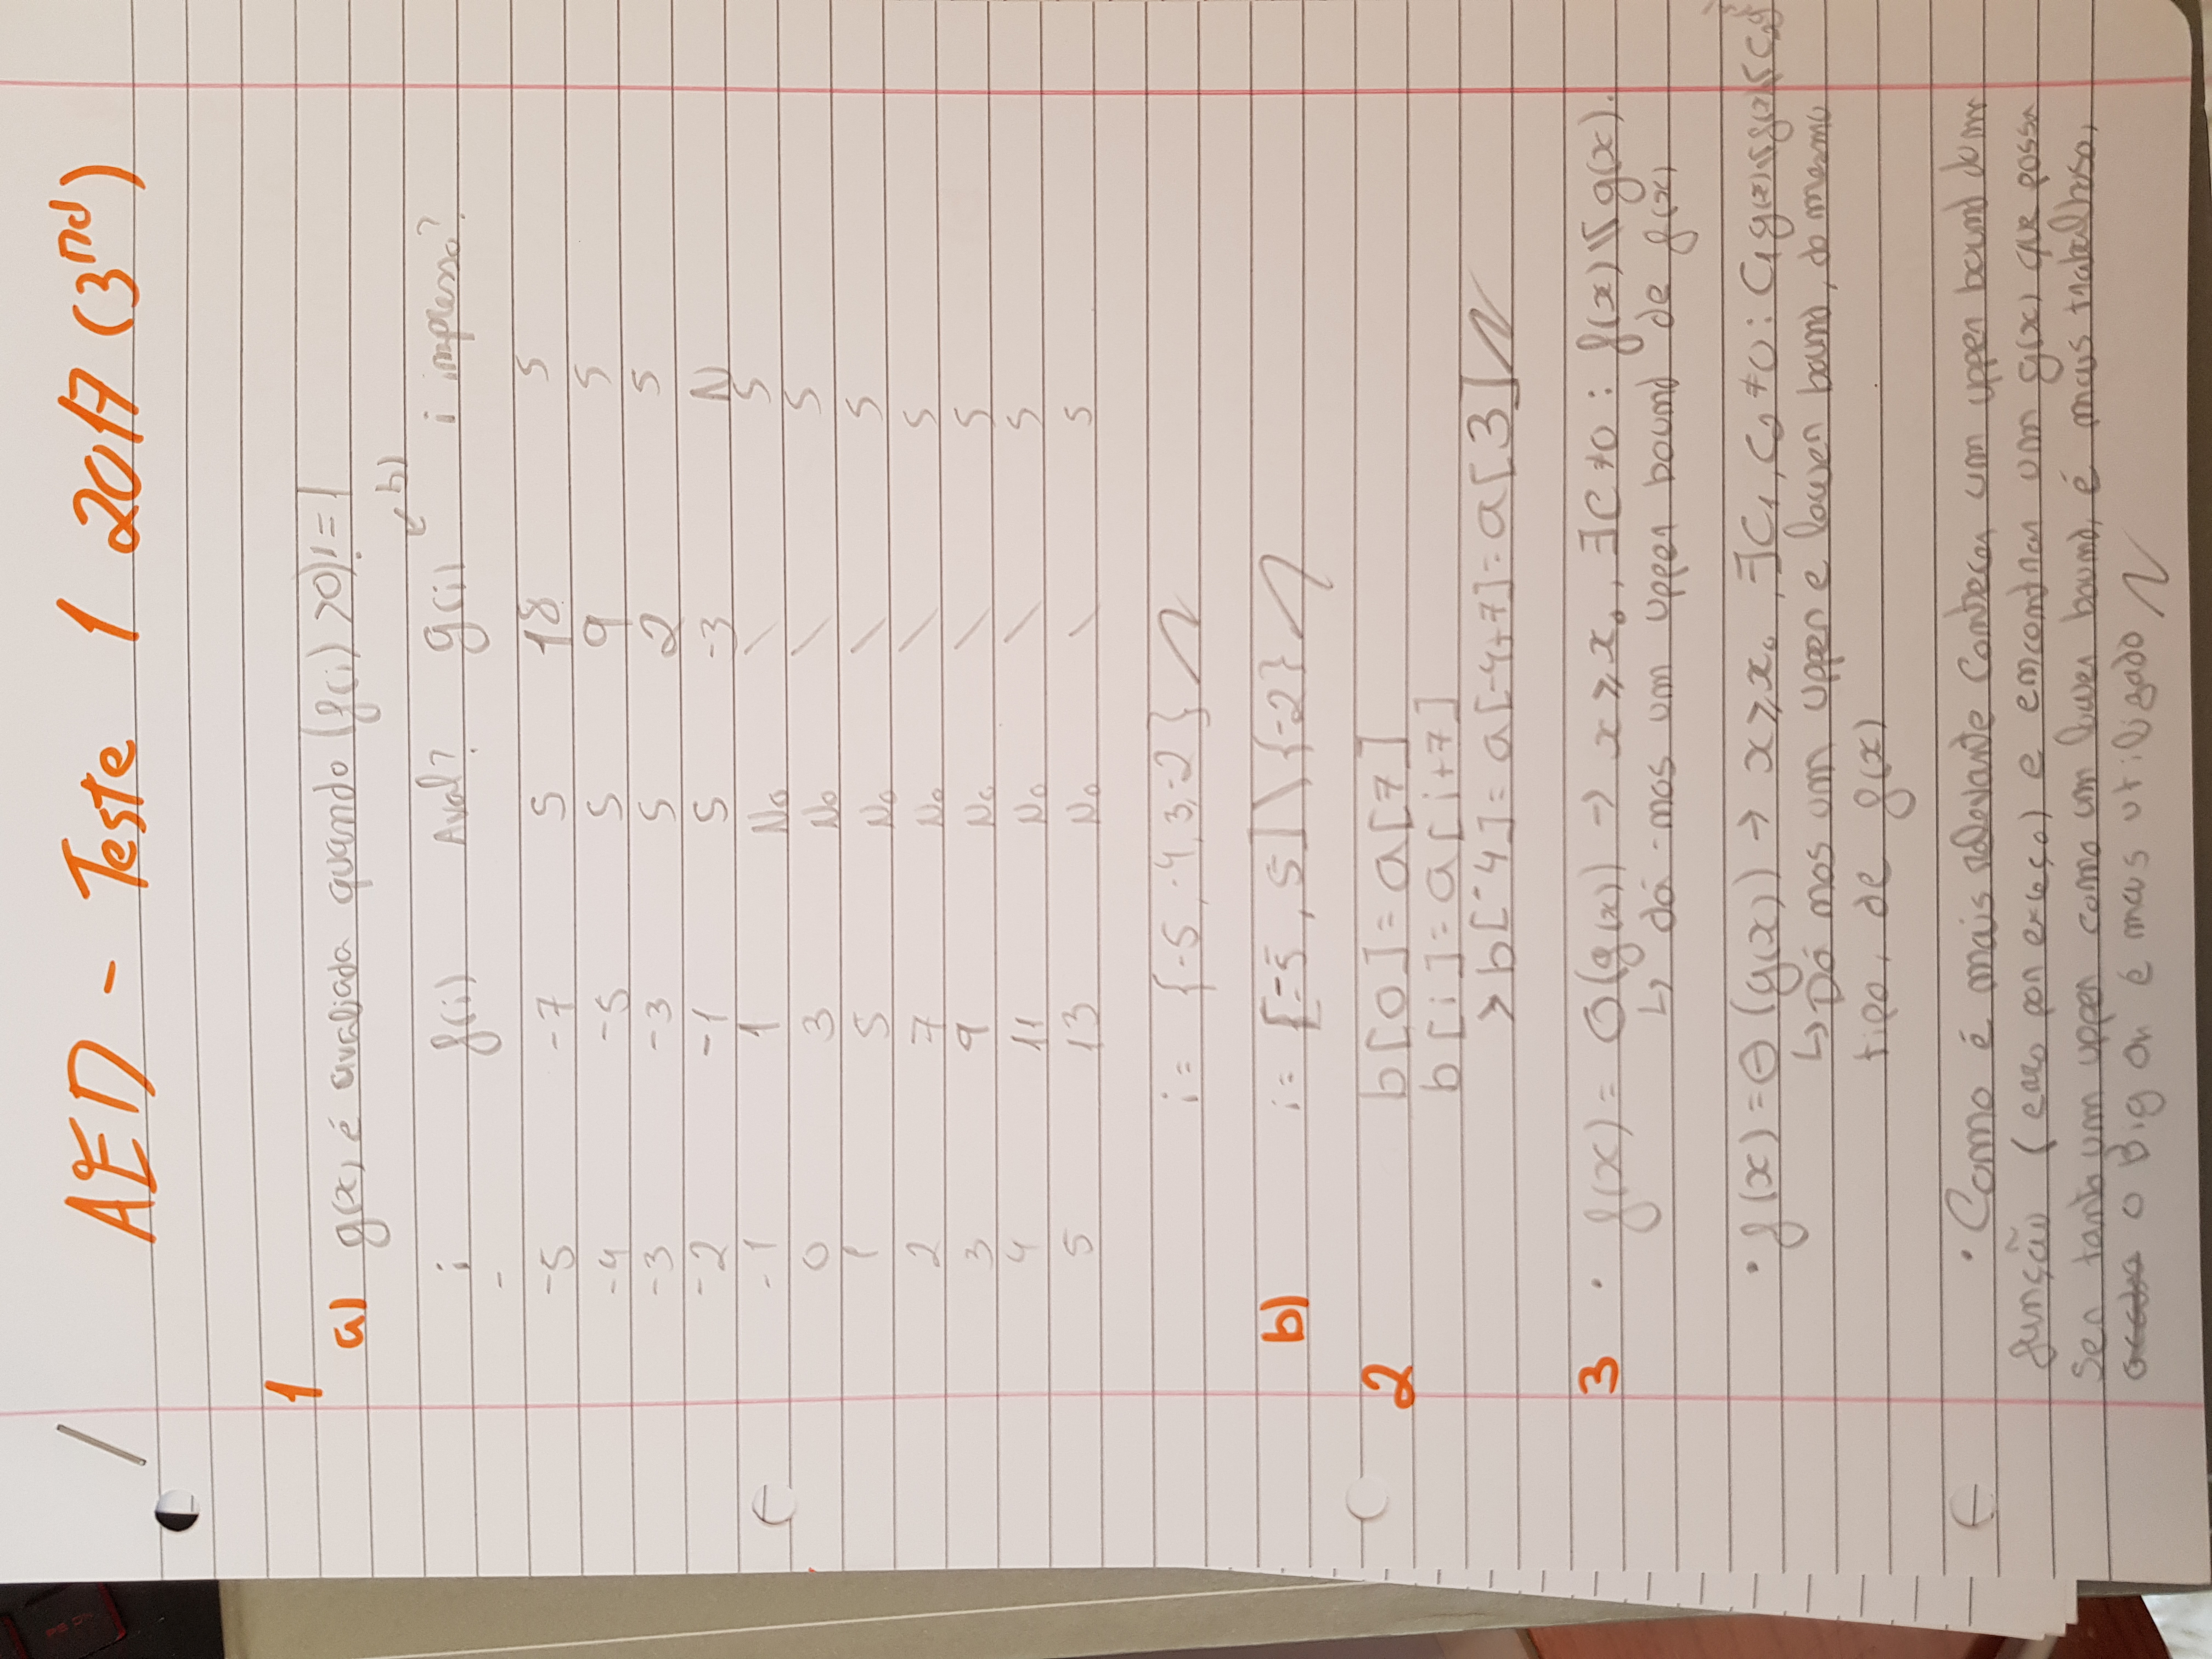 AED - Teste 1 2017 (3nd)
1
a) g(x) é avaliada quando (f(i) >0)!=1
↙ b)
i f(i) Aval? g(i) i impresso?
-
-5 -7 S 18 S
-4 -5 S 9 S
-3 -3 S 2 S
-2 -1 S -3 N
-1 1 No \ S
0 3 No \ S
1 5 No \ S
2 7 No \ S
3 9 No \ S
4 11 No \ S
5 13 No \ S
i = {-5, -4, 3, -2}
b) i = [-5, 5] \ {-2}
2 b[0] = a[7]
b[i] = a[i+7]
> b[-4] = a[-4+7] = a[3]
3 • f(x) = O(g(x)) → x ≥ x₀, ∃C ≠0 : f(x) ≤ g(x).
↳ dá-mos um upper bound de f(x)
• f(x) = Θ(g(x)) → x ≥ x₀, ∃C₁, C₂ ≠0 : C₁g(x) ≤ f(x) ≤ C₂g
↳ Dá mos um upper e lower bound, do mesmo
tipo, de f(x)
• Como é mais relevante conhecer um upper bound duma
função (erro por exceço) e encontrar um g(x) que possa
ser tanto um upper como um lower bound, é mais trabalhoso,
o Big Oh é mais utilizado